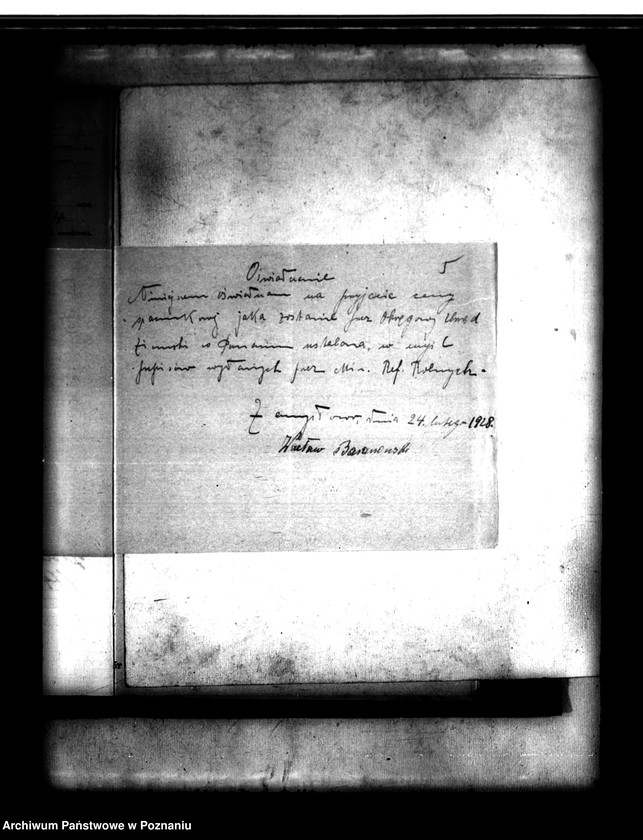 5
Oświadczenie
Niniejszem oświadczam na przyjęcie ceny
szacunkowej jaka zostanie przez Okręgowy Urząd
Ziemski w Poznaniu ustalona, w myśl
przepisów wydanych przez Min. Ref. Rolnych.
dnia 24. lutego 1928.
Wacław Baranowski
Archiwum Państwowe w Poznaniu